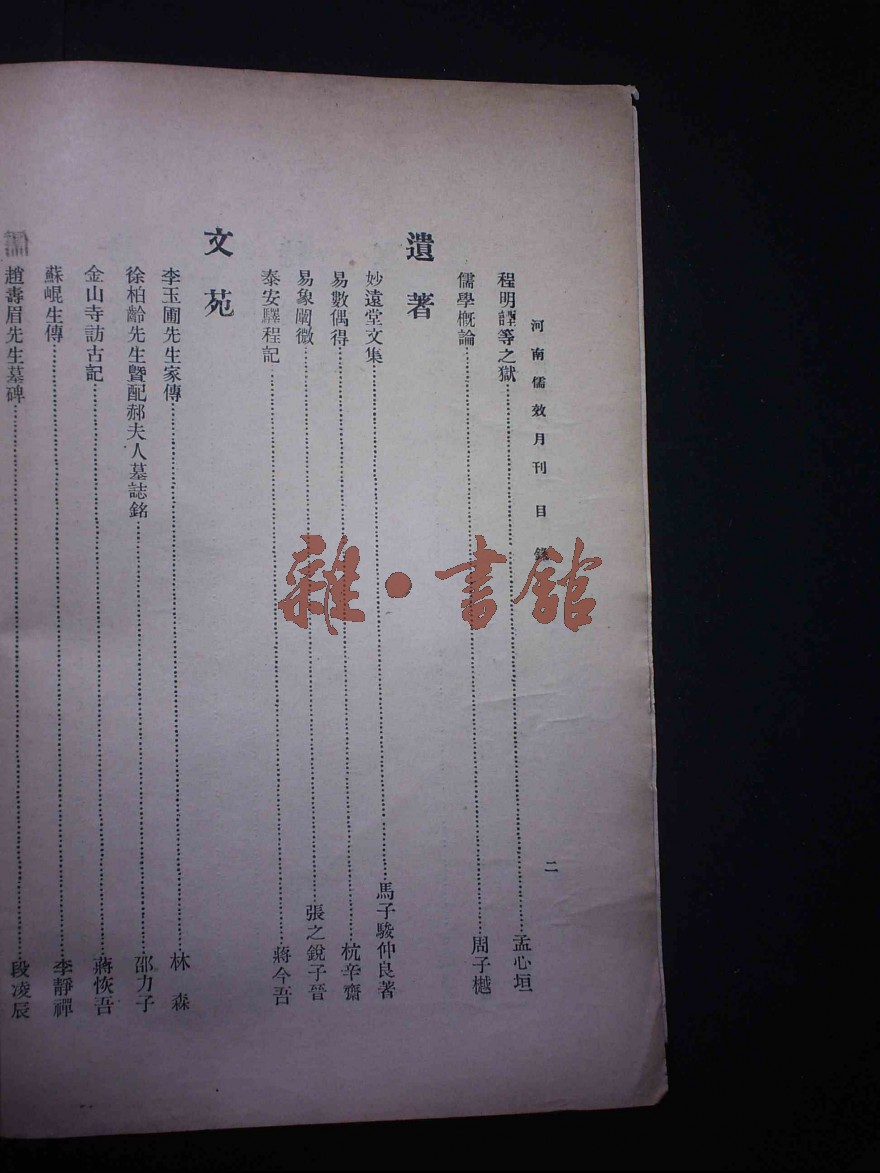 河南儒效月刊 目錄 二
程明諲等之獄⋯⋯孟心垣
儒學概論⋯⋯周子樾
遺著
妙遠堂文集⋯⋯馬子駿仲良著
易數偶得⋯⋯杭辛齋
易象闡微⋯⋯張之銳子晉
泰安驛程記⋯⋯蔣今吾
文苑
李玉圃先生家傳⋯⋯林森
徐柏齡先生暨配郝夫人墓誌銘⋯⋯邵力子
金山寺訪古記⋯⋯蔣恢吾
蘇崐生傳⋯⋯李靜禪
趙壽眉先生墓碑⋯⋯段凌辰
雜·書館